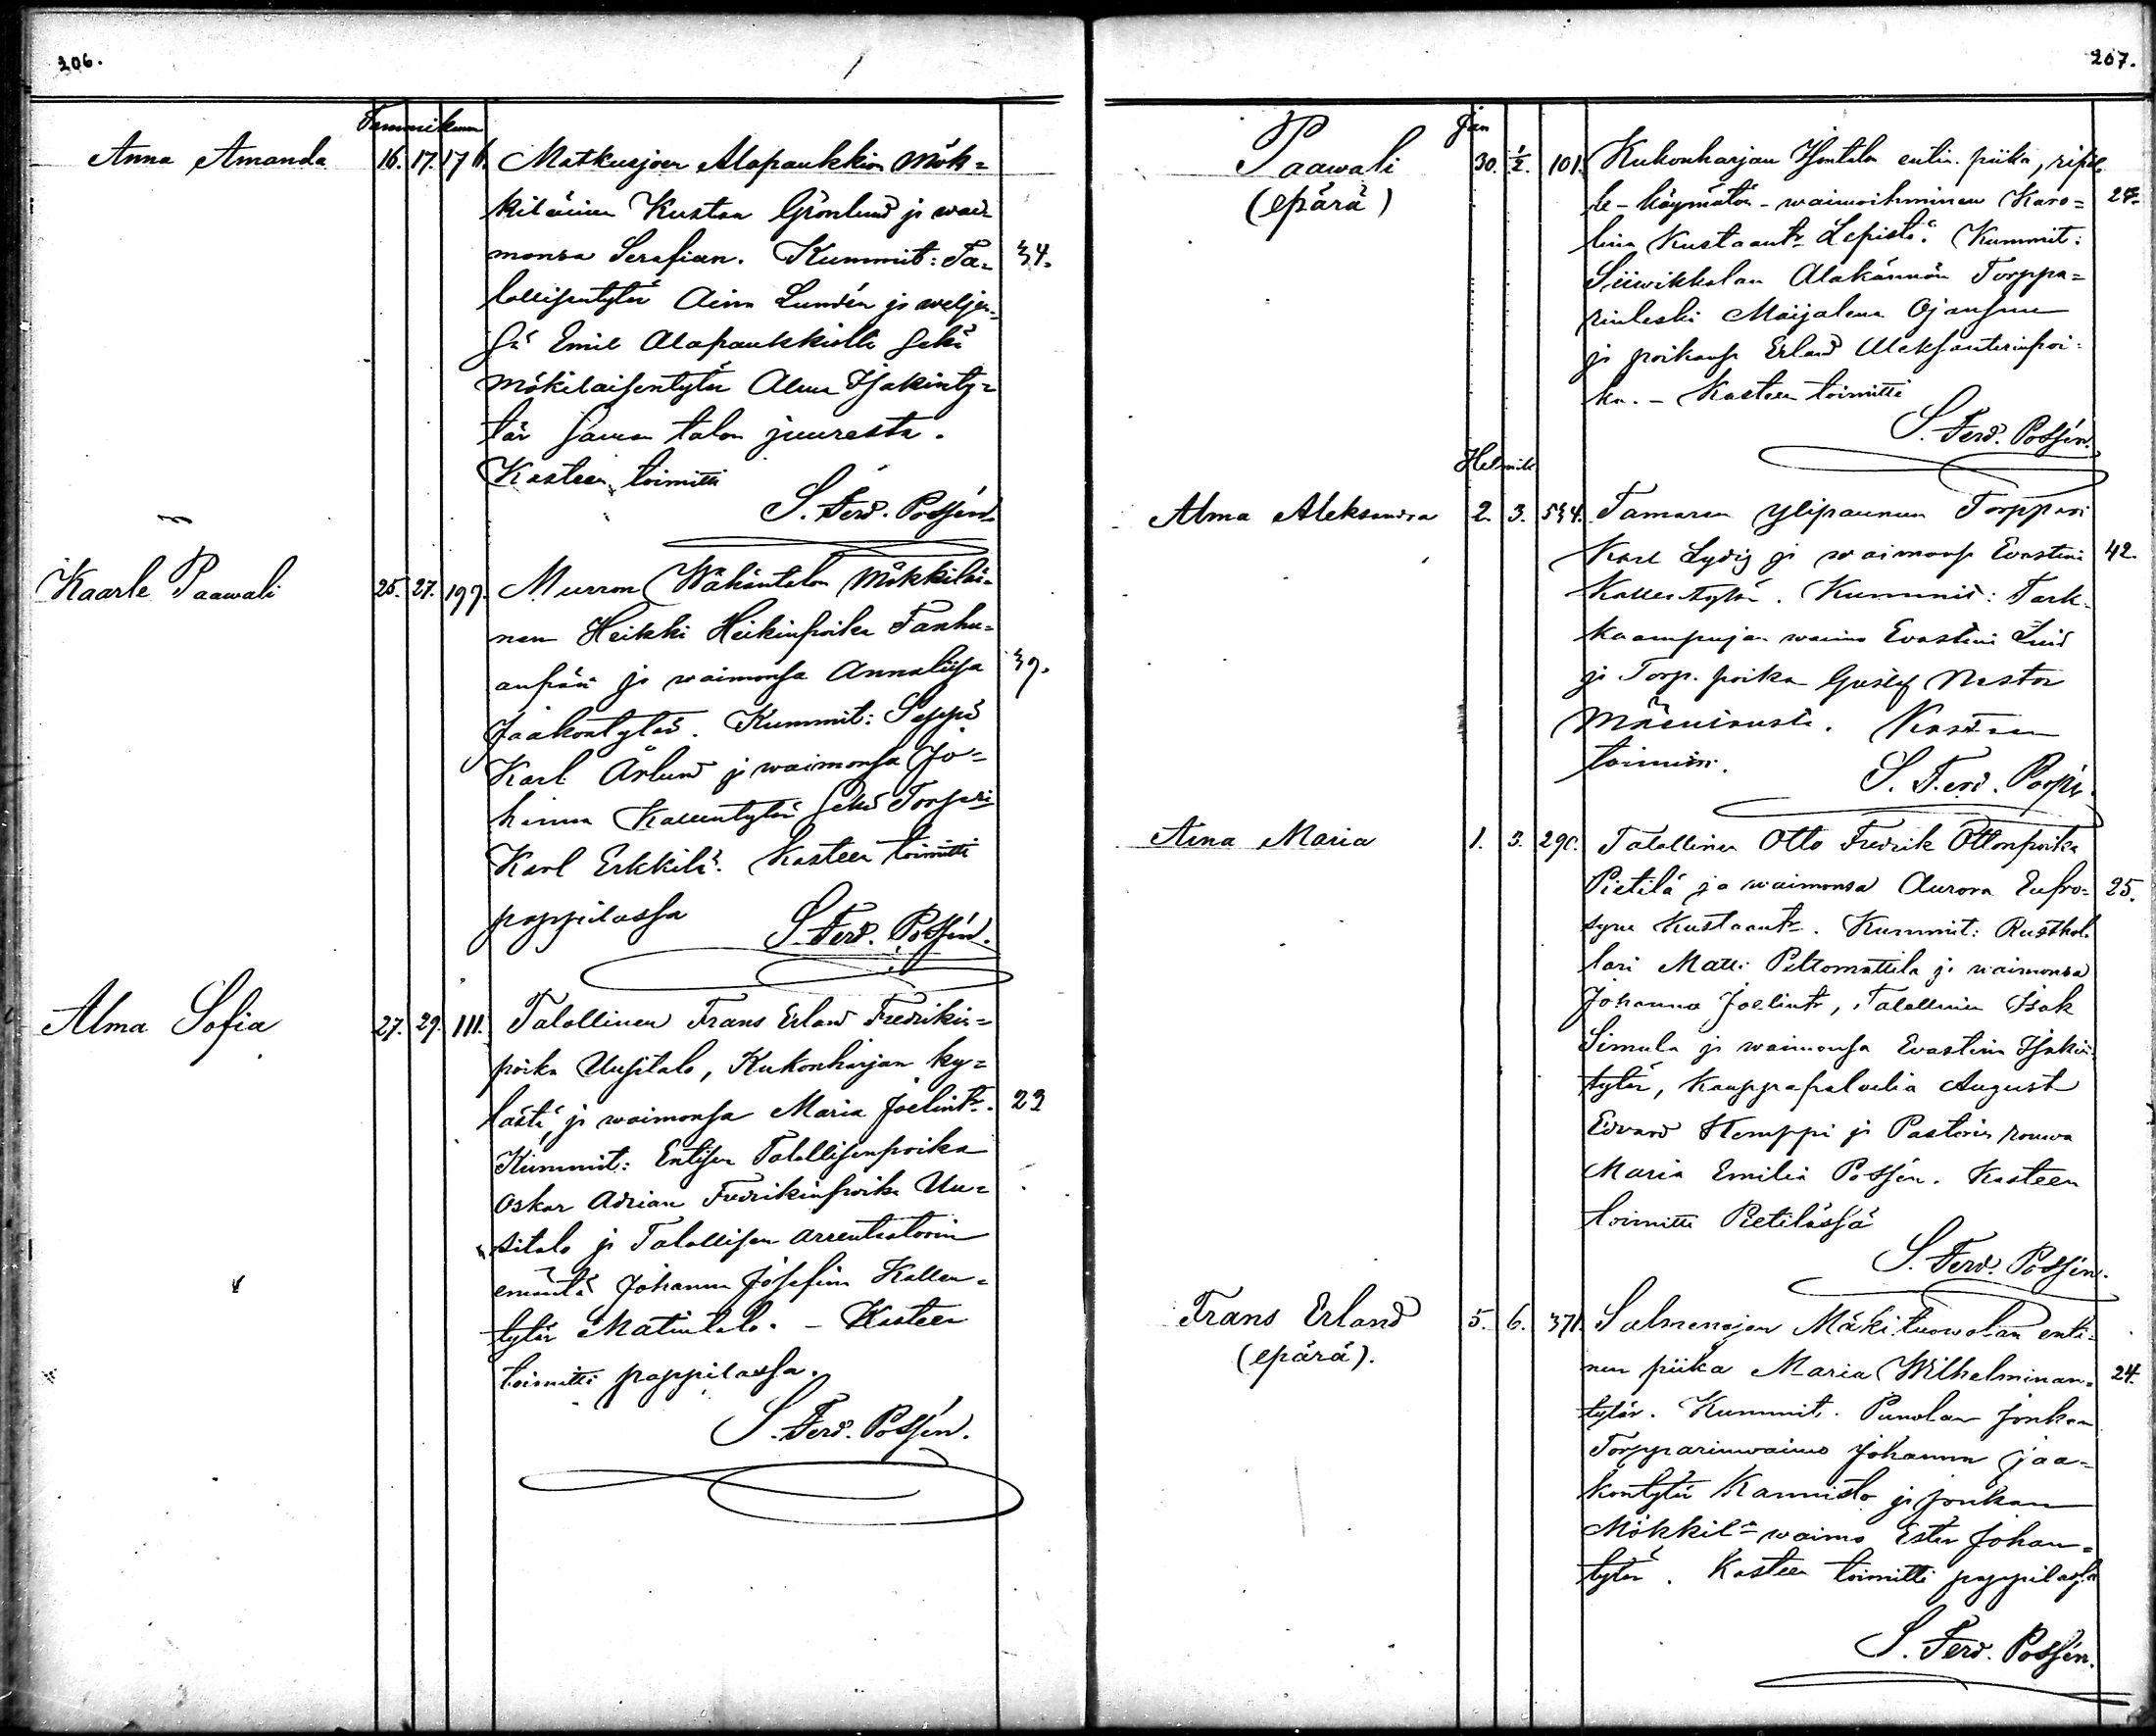 206.
Tammikuun
Anna Amanda 16. 17. 176. Matkusjoen Alapaukkion Mök=
kiläinen Kustaa Grönlund ja wai=
monsa Serafian. Kummit: Ta= 34.
lollisentytär Aina Lundén ja weljen=
sä Emil Alapaukkiolta sekä
Mökiläisentytär Alma Isakinty=
tär saman talon juuresta.
Kasteen toimitti
S. Ferd. Possén.
Kaarle Paawali 25. 27. 199. Murron Wähäntalon Mökkiläi=
nen Heikki Heikinpoika Tanhu=
anpää ja waimonsa Annaliisa 39.
Jaakontytär. Kummit: Seppä
Karl Ärlund ja waimonsa Jo=
hanna Kallentytär sekä Torpari
Karl Erkkilä. Kasteen toimitti
pappilassa
S. Ferd. Possén.
Alma Sofia 27. 29. 111. Talollinen Frans Erland Fredrikin=
poika Uusitalo, Kukonharjan ky=
lästä, ja waimonsa Maria Joelintr. 23
Kummit: Entisen Talollisenpoika
Oskar Adrian Fredrikinpoika Uu=
sitalo ja Talollisen arrentaatorin
emäntä Johanna Josefina Kallen=
tytär Matintalo. – Kasteen
toimitti pappilassa.
S. Ferd. Possén.
207.
Jan
Paawali 30. 1/2. 101. Kukonharjan Isontalon entin. piika, ripil=
(epärä) le-käymätön-waimoihminen Karo= 27.
lina Kustaantr Lepistö. Kummit:
Siiwikkalan Alakännön Torppa=
rinleski Maijalena Ojansuu
ja poikansa Erland Aleksanterinpoi=
ka. – Kasteen toimitti
S. Ferd. Possén.
Helmik.
Alma Aleksandra 2. 3. 534. Tamaren Ylipaunun Torppari
Karl Lydig ja waimonsa Evastiina 42.
Kallentytär. Kummit: Tark=
kaampujan waimo Evastiina Lind
ja Torp. poika Gustaf Nestor
Kasteen
toimitti.
S. Ferd. Possén.
Aina Maria 1. 3. 290. Talollinen Otto Fredrik Ottonpoika
Pietilä ja waimonsa Aurora Eufro= 25.
syne Kustaantr. Kummit: Rusthol=
lari Matti Peltomattila ja waimonsa
Johanna Joelintr, Talollinen Isak
Simula ja waimonsa Evastiina Isakin=
tytär, Kauppapalvelia August
Edvard Kemppi ja Pastorin rouwa
Maria Emilia Possén. Kasteen
toimitti Pietilässä
S. Ferd. Possén.
Frans Erland 5. 6. 371. Salmenojan Mäkituowolan enti=
(epärä). nen piika Maria Wilhelminan= 24.
tytär. Kummit: Punolan Jonkan
Torpparinwaimo Johanna Jaa=
kontytär Kannisto ja Jonkan
Mökkil= waimo Ester Johan=
tytär. Kasteen toimitti pappilassa
S. Ferd. Possén.